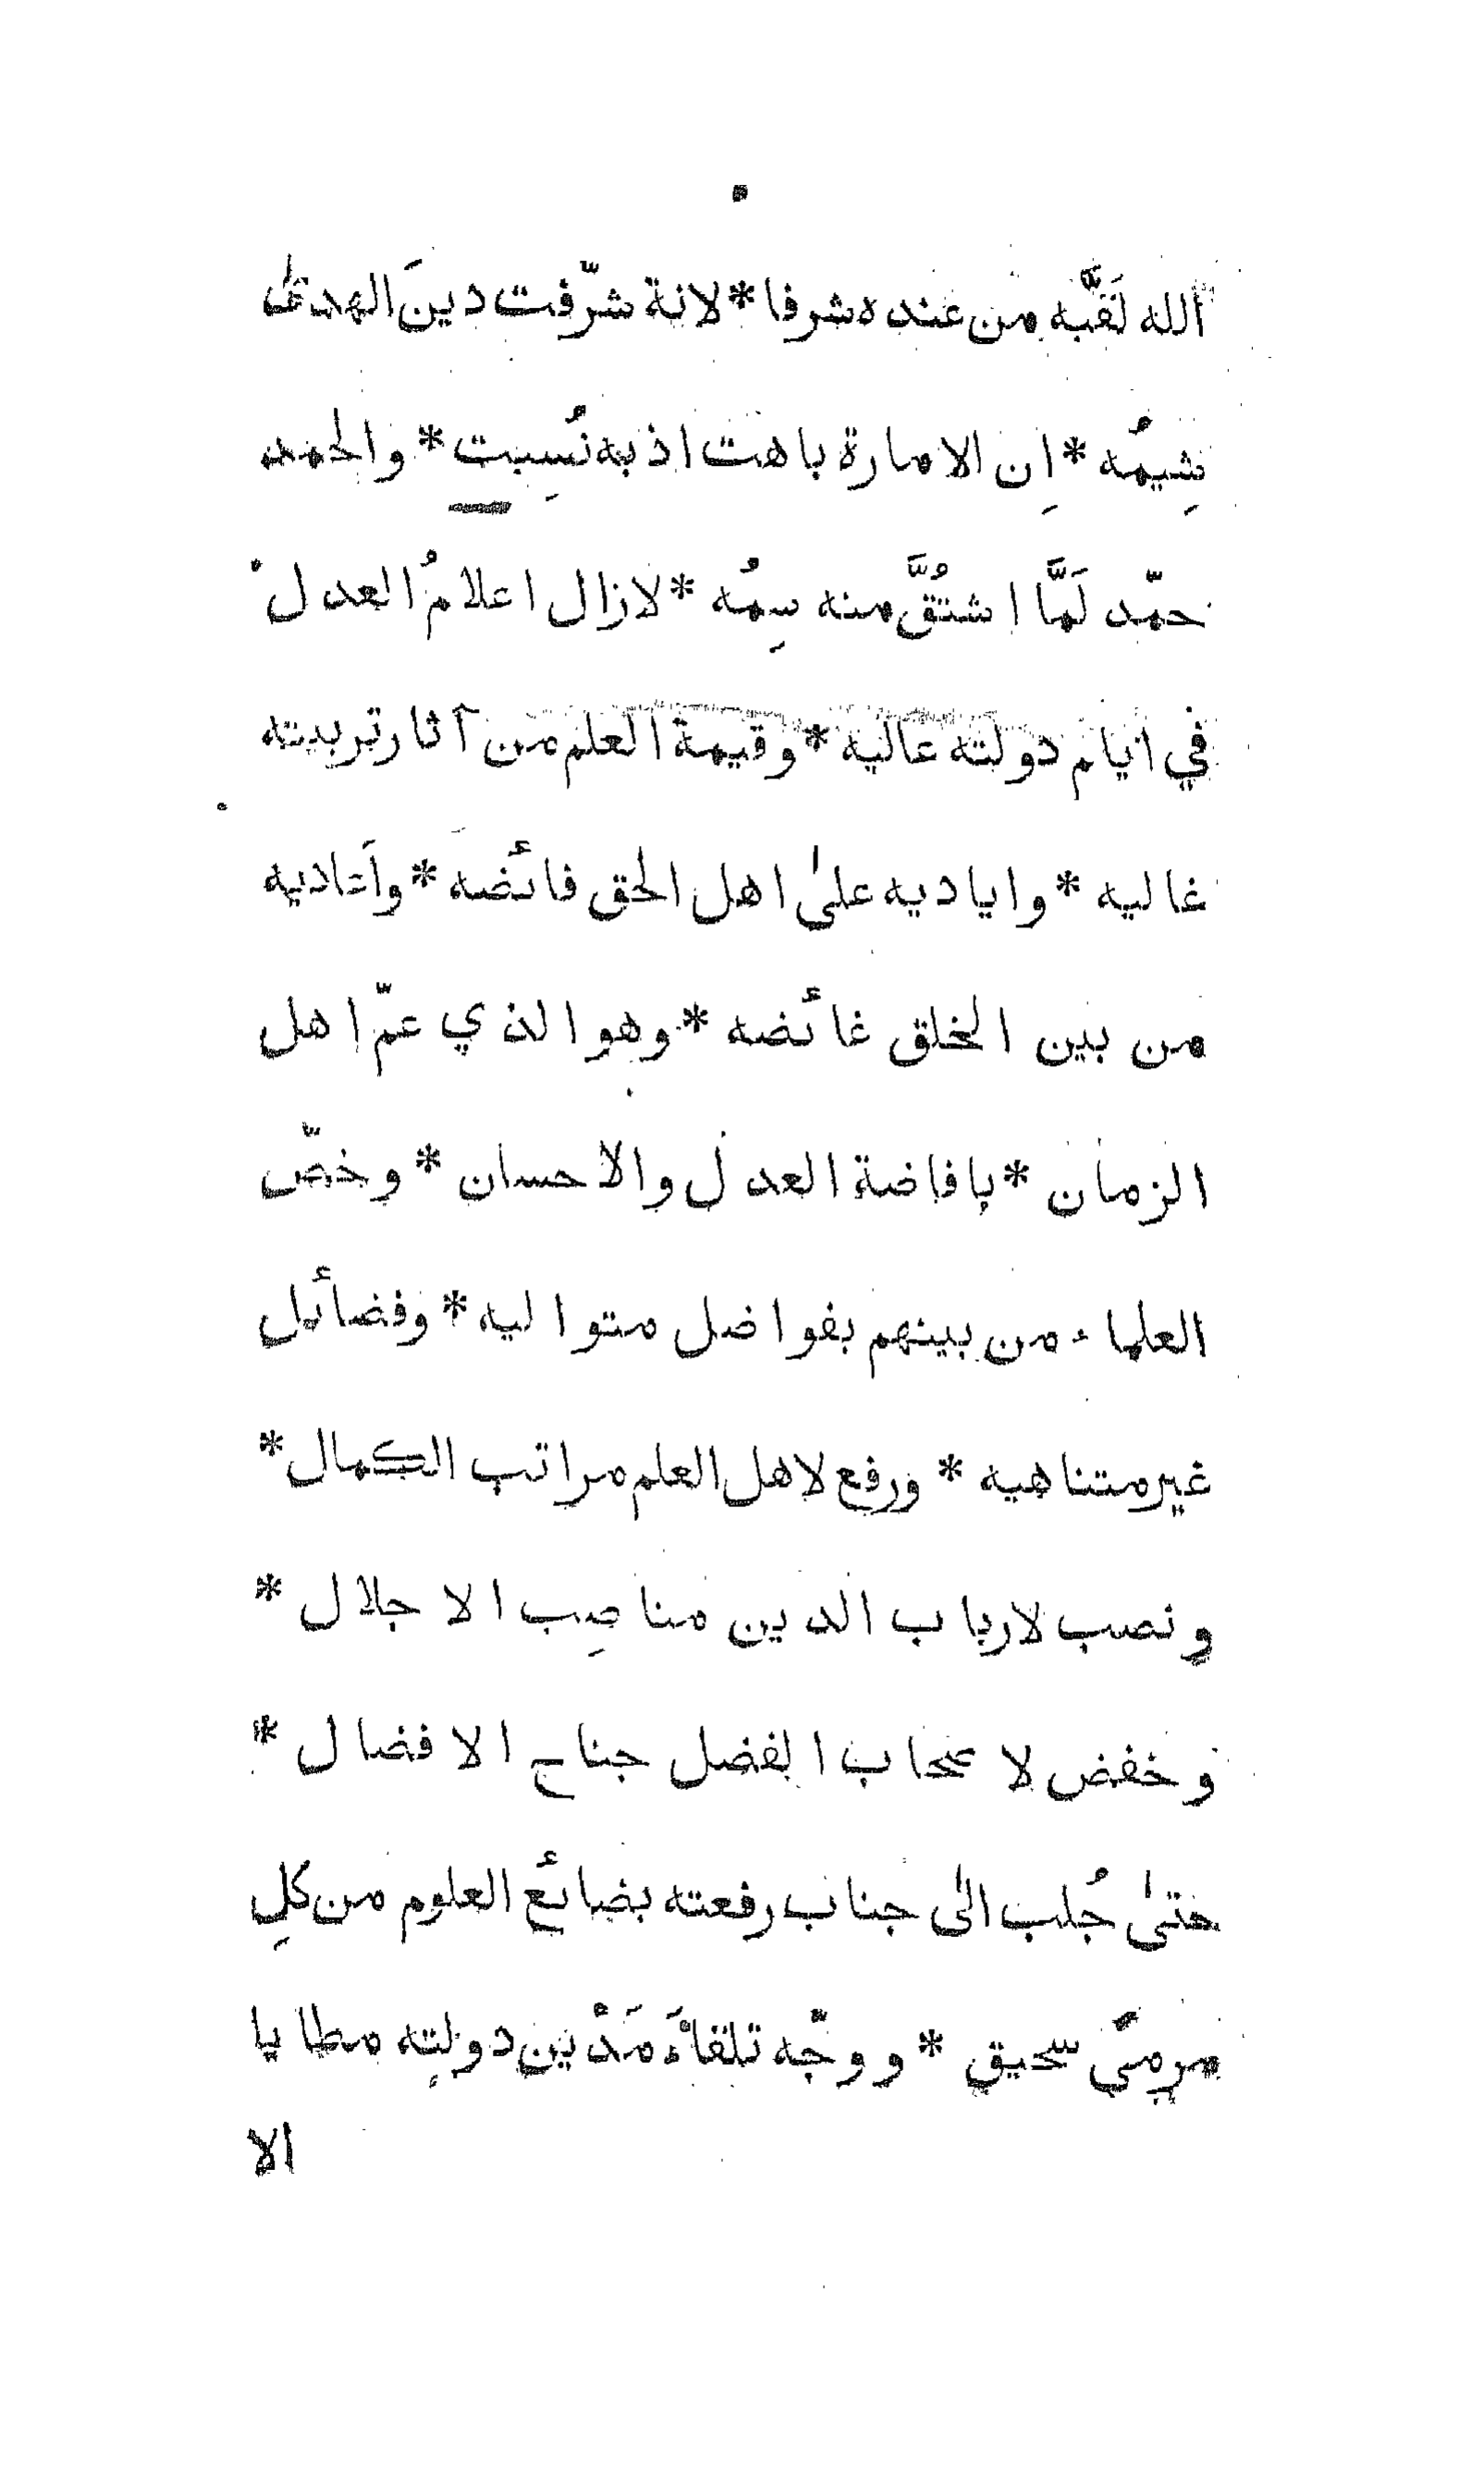 ٥
الله لَقَّبه من عنده شرفا * لانه شرّفت دينَ الهدىٰ
شِيمُه * اِن الامارة باهت اذ به نُسِبت * والحمد
حمّد لَمَّا اشتُقَّ منه سِمُه * لازال اعلامُ العدل
في ايام دولته عاليه * وقيمة العلم من آثار تربيته
غاليه * واياديه علىٰ اهل الحق فائضه * واَعاديه
من بين الخلق غائضه * وهو الذي عمّ اهل
الزمان * بافاضة العدل والاحسان * وخصّ
العلماء من بينهم بفواضل متواليه * وفضائل
غير متناهيه * ورفع لاهل العلم مراتب الكمال *
ونصب لارباب الدين مناصِب الاجلال *
وخفض لاصحاب الفضل جناح الافضال *
حتىٰ جُلب الىٰ جناب رفعته بضائع العلوم من كلِ
مرمًى سحيق * ووجّه تلقاءَ مَدْين دولتِه مطايا
الا